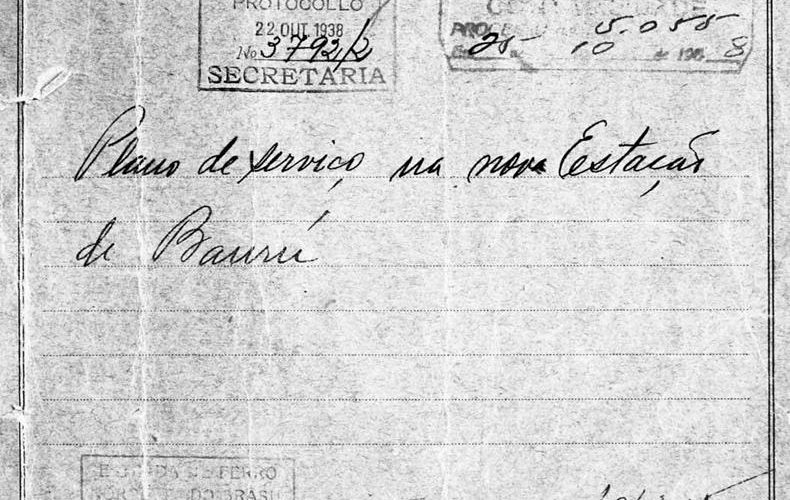 PROTOCOLLO
22 OUT 1938
No 3792/2
SECRETARIA
5.055
25 10 193 8
Plano de serviço na nova Estação
de Baurú
ESTRADA DE FERRO
NOROESTE DO BRASIL